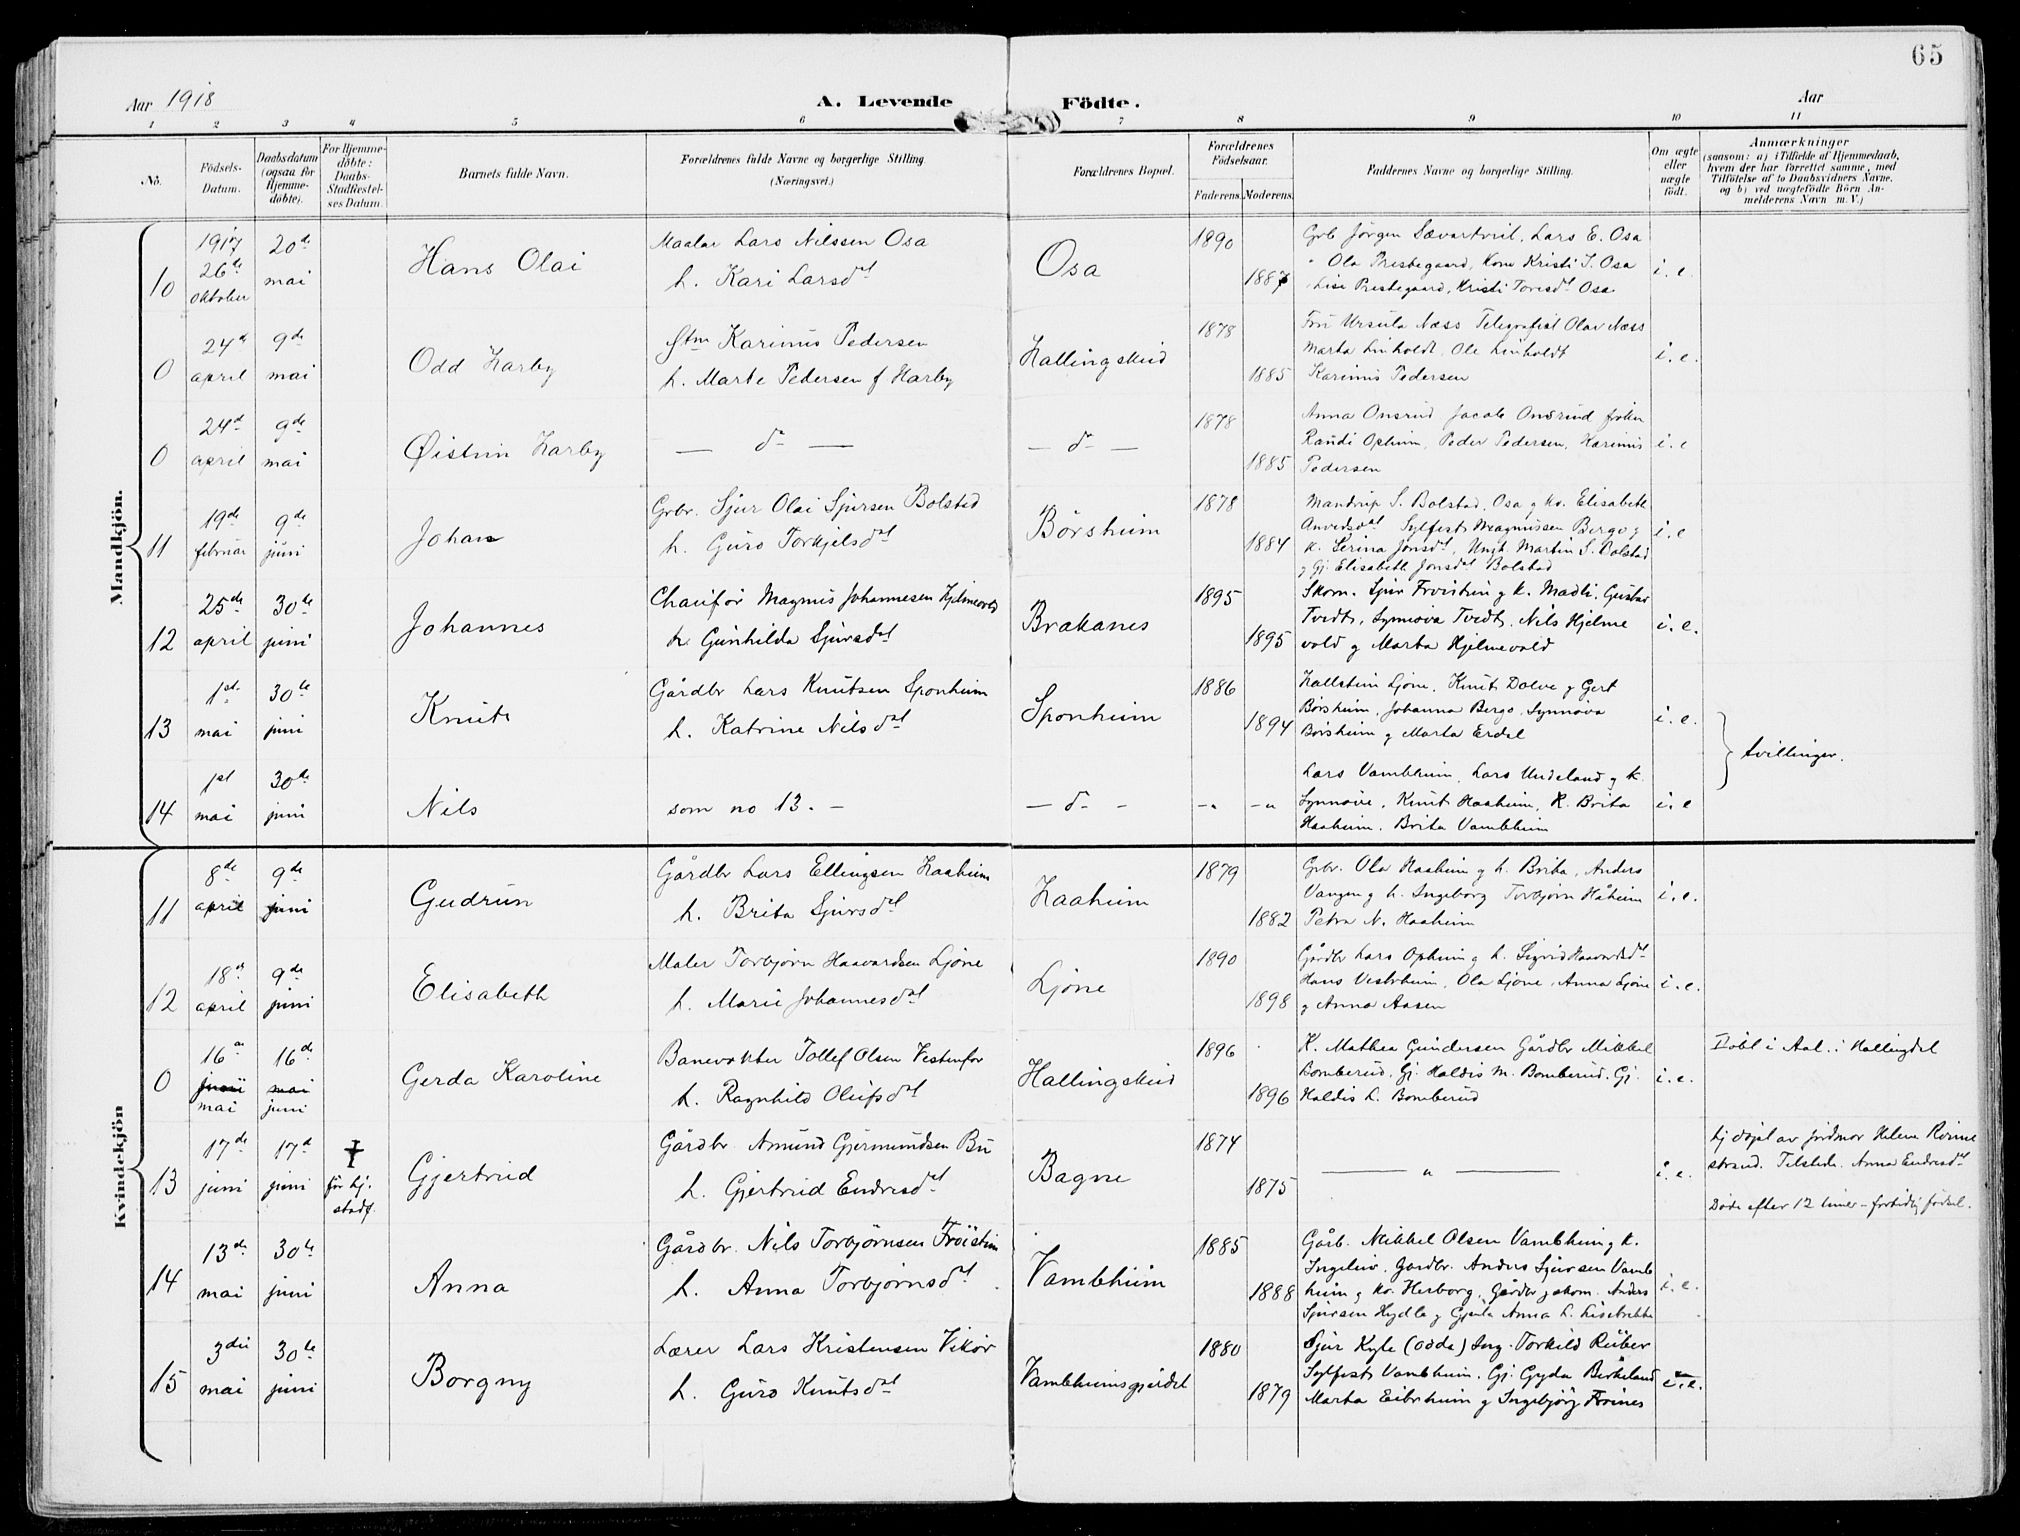 65
Aar 1918
A. Levende Födte.
Aar
1 2 3 4 5 6 7 8 9 10 11
No.
Födsels-Datum.
Daabsdatum (ogsaa for Hjemme-döbte).
For Hjemme-döbte: Daabs-Stadfæstel-ses Datum.
Barnets fulde Navn.
Forældrenes fulde Navne og borgerlige Stilling.
(Næringsvei.)
Forældrenes Bopæl.
Forældrenes Födselsaar.
Faderens. Moderens.
Faddernes Navne og borgerlige Stilling.
Om ægte eller uægte födt.
Anmærkninger
(saasom: a) i Tilfælde af Hjemmedaab,
hvem der har forrettet samme, med
Tilföielse af to Daabsvidners Navne,
og b) ved uægtefödte Börn An-
melderens Navn m. V.)
Mandkjön.
10
1917 26de oktober
20de mai
Hans Olai
Maalar Lars Nilssen Osa
h. Kari Larsdt
Osa
1890
1887
Grb Jörgen Sævartveit, Lars E. Osa
" Ola Prestegaard, Kone Kristi S. Osa
Lise Prestegaard, Kristi Toresdt Osa
i. e.
0
24d april
9de mai
Odd Harby
Karinius Pedersen
h. Marte Pedersen f Harby
Hallingskeid
1878
1885
Fru Ursula Næss Telegrafist Olav Næss
Marta Linholdt, Ole Linholdt
Karinius Pedersen
i. e.
0
24d april
9de mai
Øistein Harby
— do —
— do —
1878
1885
Anna Onsrud Jacob Onsrud frøken
Randi Opheim, Peder Pedersen, Karinius
Pedersen
i. e
11
19de februar
9de juni
Johan
Grbr. Sjur Olai Sjursen Bolstad
h. Guro Torkjelsdt
Börsheim
1878
1884
Mandrup S. Bolstad, Osa g kv. Elisabeth
Anvedsdt Sylfest Magnussen Berge g
k. Serina Jonsdt, Ungk. Martin S. Bolstad
g Gj. Elisabeth Jonsdt Bolstad
i. e
12
25de april
30te juni
Johannes
Chaufør Magnus Johannesen Hjelmevold
h. Gunhilda Sjursdt
Brakanes
1895
1895
Skom. Sjur Frøistein g k. Madli, Gustav
Tvedt, Synnöva Tvedt, Nils Hjelme
vold g Marta Hjelmevold
i. e.
13
1st mai
30te juni
Knut
Gårdbr Lars Knutsen Sponheim
h. Katrine Nilsdt
Sponheim
1886
1894
Hallstein Ljöne, Knut Dolve g Gert
Börsheim, Johanna Berge, Synnöva
Börsheim g Marta Erdal
i. e.
tvillinger.
14
1st mai
30te juni
Nils
som no 13. —
— do —
—"
—"
Lars Vambheim, Lars Undeland g k.
Synnöve, Knut Haaheim, K. Brita
Haaheim, Brita Vambheim
i. e
Kvindekjön
11
8de april
9de juni
Gudrun
Gårdbr Lars Ellingsen Haaheim
h. Brita Sjursdt
Haaheim
1879
1882
Grbr. Ola Haaheim g h. Brita, Anders
Vangen g h. Ingeborg Torbjørn Håheim
Petra N. Haaheim
i. e.
12
18d april
9de juni
Elisabeth
Maler Torbjørn Haavardsen Ljöne
h. Marie Johannesdt
Ljöne
1890
1898
Gårdbr Lars Opheim g h. Sigrid Haavardsdt
Hans Vestrheim, Ola Ljöne, Anna Ljöne
g Anna Aasen
i. e.
0
16de juni mai
16de mai juni
Gerda Karoline
Banevokter Tollef Olsen Vestenfor
h. Ragnhild Olufsdt
Hallingskeid
1896
1896
K. Mathea Gundersen Gårdbr Mikkel
Bomberud, Gj. Haldis M. Bomberud, Gj.
Haldis L. Bomberud
i. e.
Döbt i Aal i Hallingdal
13
17de juni
17d juni
† før hj. stadf.
Gjertrud
Gårdbr Amund Gjermundsen Bu
h. Gjertrud Endresdt
Bagne
1874
1875
— " —
i. e.
Hj døpt av jordmor Helene Rosne
strand. Tilstede. Anna Endresdt
Døde efter 12 timer – fortidig fødsel.
14
13de mai
30te juni
Anna
Gårdbr. Nils Torbjørnsen Frøistein
h. Anna Torbjørnsdt
Vambheim
1885
1888
Gårb. Mikkel Olsen Vambheim g k.
Ingeleiv, Gardbr. Anders Sjursen Vamb
heim g kv. Herborg, Gårdbr g skom. Anders
Sjursen Hydle g Gjenta Anna L. Lisebrekke
i. e.
15
3die mai
30te juni
Borgny
Lærer Lars Kristensen Vikør
h. Guro Knutsdt
Vambheimsgjeldet
1880
1879
Sjur Kyle (Odda) Ing. Torkild Røber
Sylfest Vambheim, Gj. Gyda Birkeland
Marta Eibrheim g Ingebjörg Frønes
i. e.